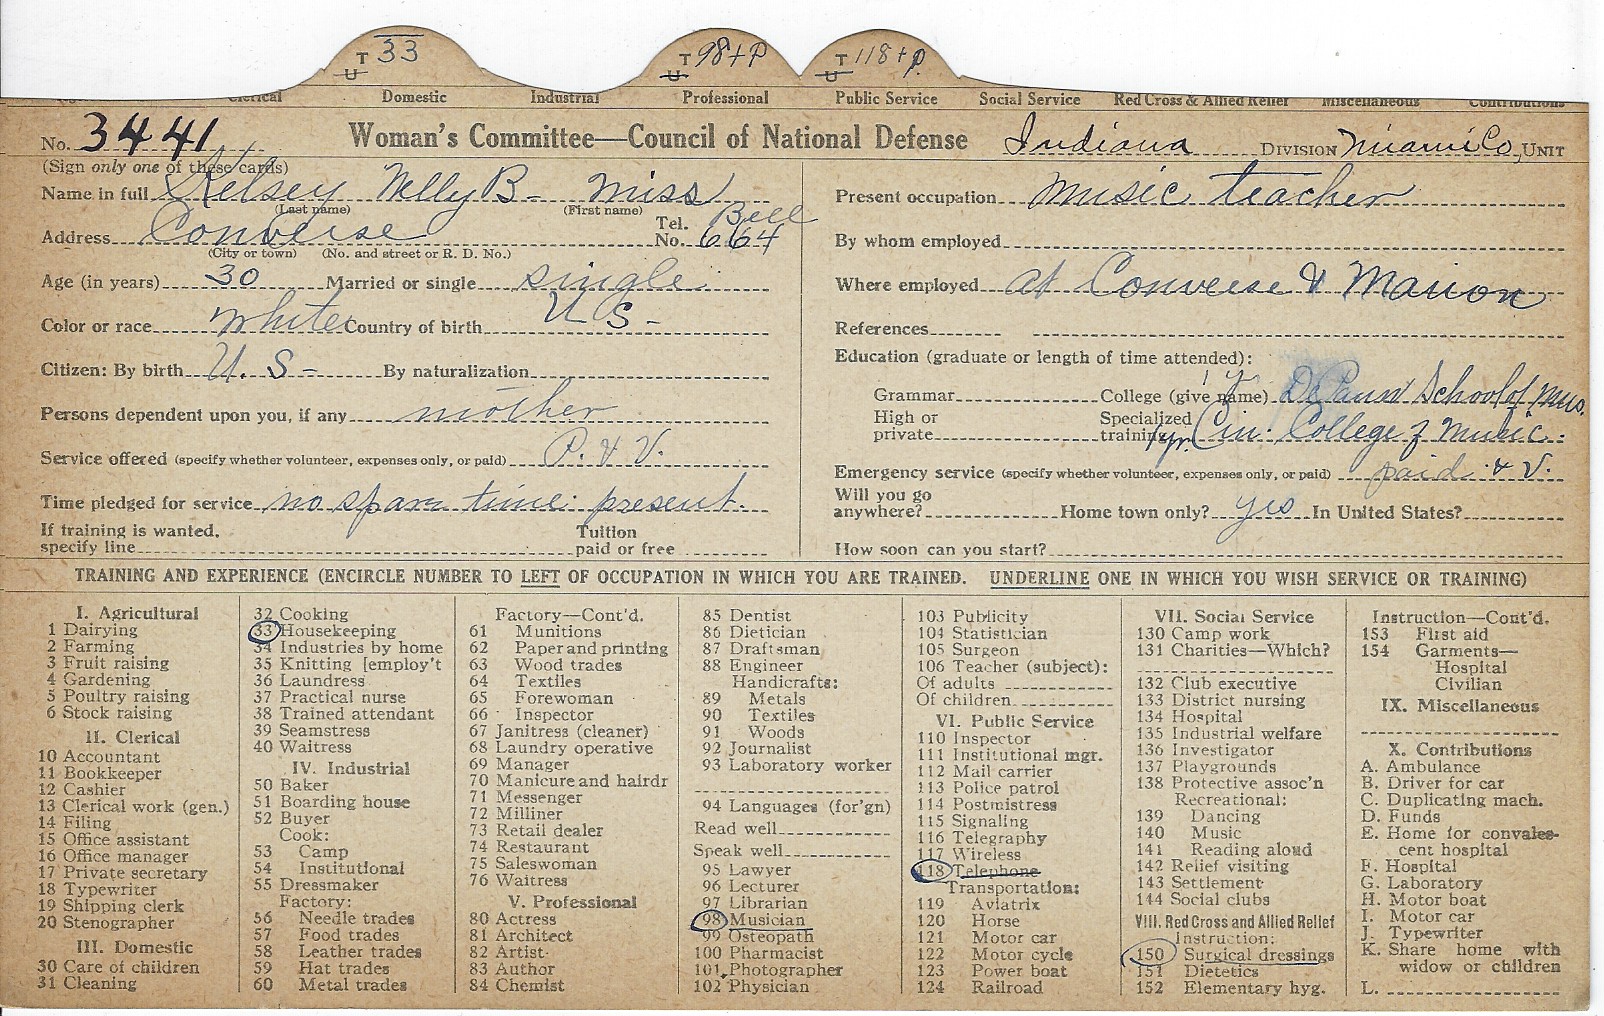 T 33 T 98+P T 118+P.
U U U
Clerical Domestic Industrial Professional Public Service Social Service Red Cross & Allied Relief Miscellaneous Contributions
No. 3441 Woman's Committee—Council of National Defense Indiana DIVISION Miami Co, UNIT
(Sign only one of these cards)
Name in full Kelsey Nelly B- Miss
(Last name) (First name)
Address Converse Tel. No. Bell 664
(City or town) (No. and street or R. D. No.)
Age (in years) 30 Married or single single
Color or race white Country of birth U S-
Citizen: By birth U. S- By naturalization
Persons dependent upon you, if any mother
Service offered (specify whether volunteer, expenses only, or paid) P. & V.
Time pledged for service no spare time present.
If training is wanted, Tuition
specify line paid or free
Present occupation music teacher
By whom employed
Where employed at Converse & Marion
References
Education (graduate or length of time attended):
Grammar College (give name) 1 y DePauw School of Mus.
High or private Specialized training 1yr. Cin. College of Music.
Emergency service (specify whether volunteer, expenses only, or paid) paid & V.
Will you go
anywhere? Home town only? yes In United States?
How soon can you start?
TRAINING AND EXPERIENCE (ENCIRCLE NUMBER TO LEFT OF OCCUPATION IN WHICH YOU ARE TRAINED. UNDERLINE ONE IN WHICH YOU WISH SERVICE OR TRAINING)
I. Agricultural
1 Dairying
2 Farming
3 Fruit raising
4 Gardening
5 Poultry raising
6 Stock raising
II. Clerical
10 Accountant
11 Bookkeeper
12 Cashier
13 Clerical work (gen.)
14 Filing
15 Office assistant
16 Office manager
17 Private secretary
18 Typewriter
19 Shipping clerk
20 Stenographer
III. Domestic
30 Care of children
31 Cleaning
32 Cooking
33 Housekeeping
34 Industries by home
35 Knitting [employ't
36 Laundress
37 Practical nurse
38 Trained attendant
39 Seamstress
40 Waitress
IV. Industrial
50 Baker
51 Boarding house
52 Buyer
Cook:
53 Camp
54 Institutional
55 Dressmaker
Factory:
56 Needle trades
57 Food trades
58 Leather trades
59 Hat trades
60 Metal trades
Factory—Cont'd.
61 Munitions
62 Paper and printing
63 Wood trades
64 Textiles
65 Forewoman
66 Inspector
67 Janitress (cleaner)
68 Laundry operative
69 Manager
70 Manicure and hairdr
71 Messenger
72 Milliner
73 Retail dealer
74 Restaurant
75 Saleswoman
76 Waitress
V. Professional
80 Actress
81 Architect
82 Artist
83 Author
84 Chemist
85 Dentist
86 Dietician
87 Draftsman
88 Engineer
Handicrafts:
89 Metals
90 Textiles
91 Woods
92 Journalist
93 Laboratory worker
94 Languages (for'gn)
Read well
Speak well
95 Lawyer
96 Lecturer
97 Librarian
98 Musician
99 Osteopath
100 Pharmacist
101 Photographer
102 Physician
103 Publicity
104 Statistician
105 Surgeon
106 Teacher (subject):
Of adults
Of children
VI. Public Service
110 Inspector
111 Institutional mgr.
112 Mail carrier
113 Police patrol
114 Postmistress
115 Signaling
116 Telegraphy
117 Wireless
118 Telephone
Transportation:
119 Aviatrix
120 Horse
121 Motor car
122 Motor cycle
123 Power boat
124 Railroad
VII. Social Service
130 Camp work
131 Charities—Which?
132 Club executive
133 District nursing
134 Hospital
135 Industrial welfare
136 Investigator
137 Playgrounds
138 Protective assoc'n
Recreational:
139 Dancing
140 Music
141 Reading aloud
142 Relief visiting
143 Settlement
144 Social clubs
VIII. Red Cross and Allied Relief
Instruction:
150 Surgical dressings
151 Dietetics
152 Elementary hyg.
Instruction—Cont'd.
153 First aid
154 Garments—
Hospital
Civilian
IX. Miscellaneous
X. Contributions
A. Ambulance
B. Driver for car
C. Duplicating mach.
D. Funds
E. Home for convales-
cent hospital
F. Hospital
G. Laboratory
H. Motor boat
I. Motor car
J. Typewriter
K. Share home with
widow or children
L.